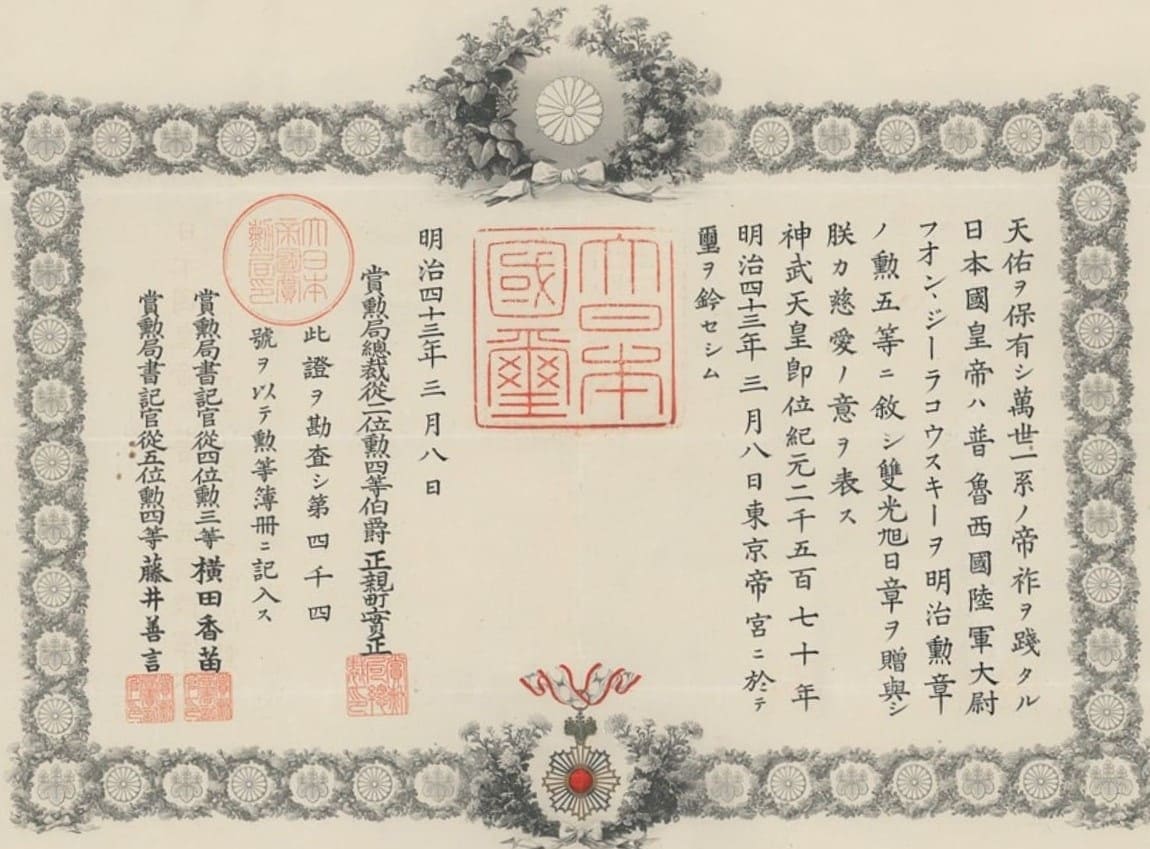 天佑ヲ保有シ萬世一系ノ帝祚ヲ踐タル
日本國皇帝ハ普魯西國陸軍大尉
フオン、ジーラコウスキーヲ明治勲章
ノ勲五等ニ敘シ雙光旭日章ヲ贈與シ
朕カ慈愛ノ意ヲ表ス
神武天皇即位紀元二千五百七十年
明治四十三年三月八日東京帝宮ニ於テ
璽ヲ鈐セシム
大日本
國璽
明治四十三年三月八日
賞勲局總裁從二位勲四等伯爵正親町實正
此證ヲ勘査シ第四千四
號ヲ以テ勲等簿冊ニ記入ス
大日本
帝國賞
勲局印
賞勲局書記官從四位勲三等横田香苗
賞勲局書記官從五位勲四等藤井善言